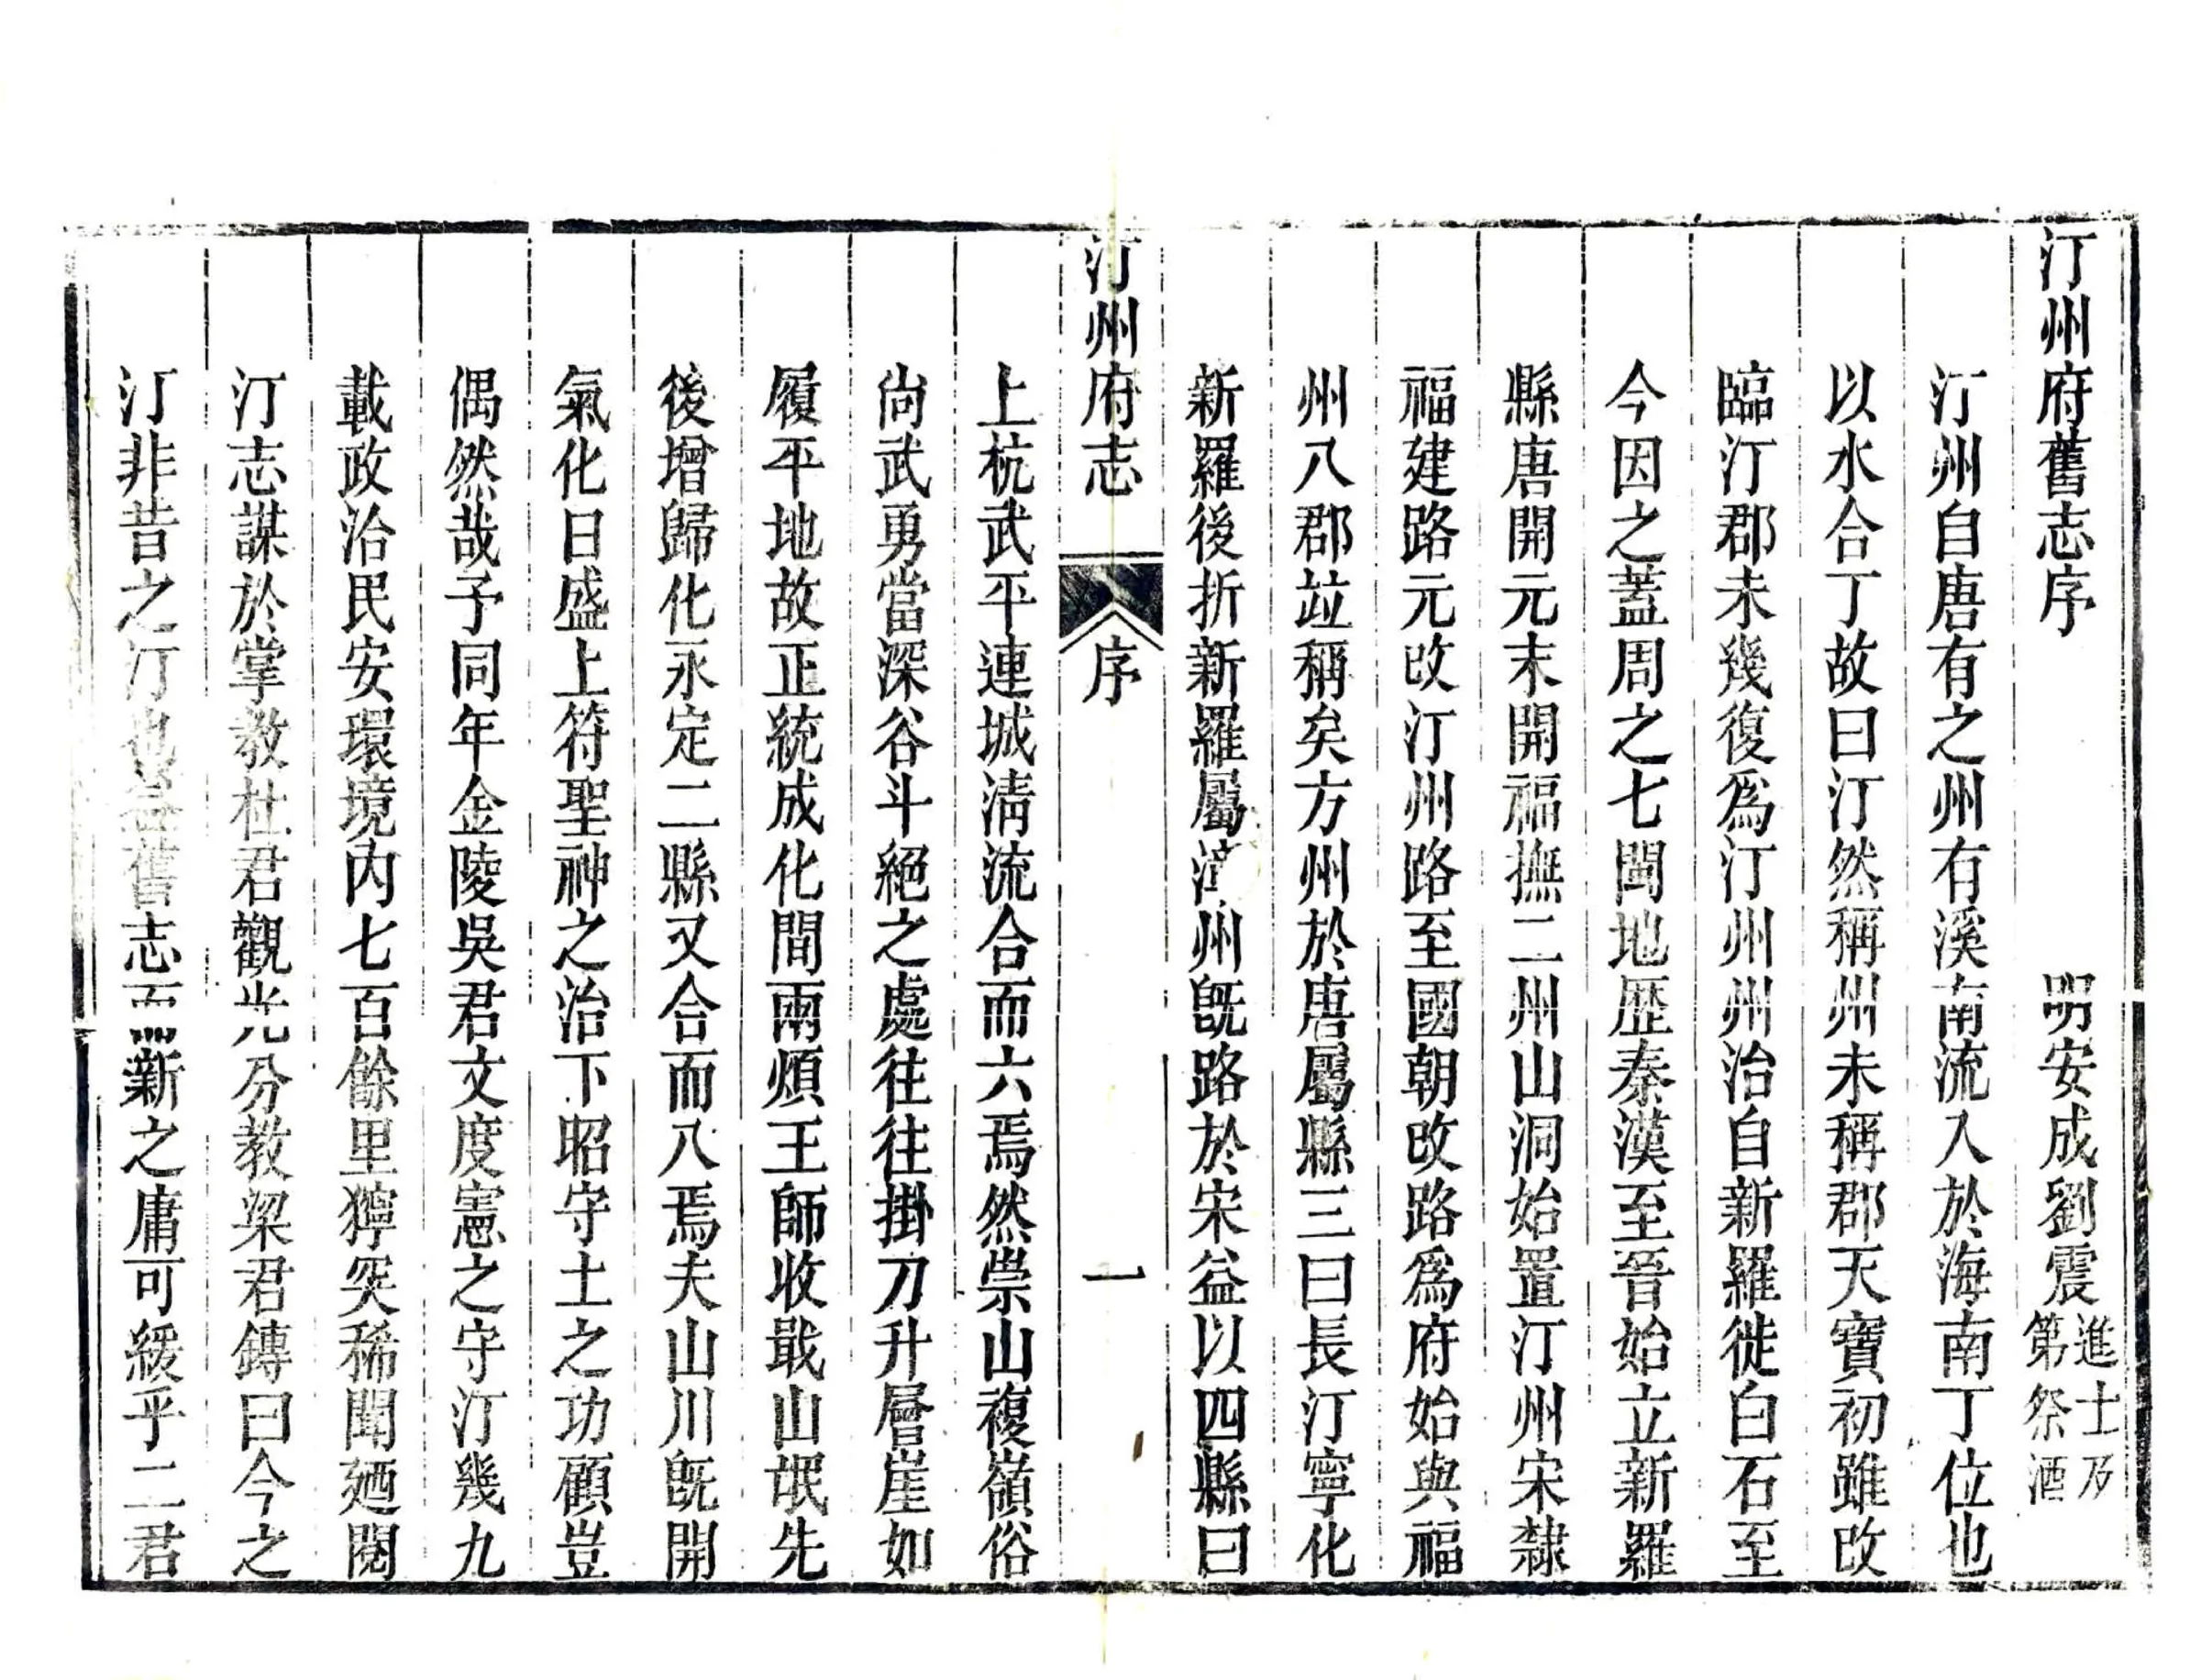 汀州府舊志序
明安成劉震進士及
第祭酒
汀州自唐有之州有溪南流入於海南丁位也
以水合丁故曰汀然稱州未稱郡天寶初雖改
臨汀郡未幾復爲汀州州治自新羅徙白石至
今因之蓋周之七閩地歴秦漢至晉始立新羅
縣唐開元末開福撫二州山洞始置汀州宋隸
福建路元改汀州路至國朝改路爲府始與福
州八郡竝稱矣方州於唐屬縣三曰長汀寧化
新羅後折新羅屬漳州旣路於宋益以四縣曰
汀州府志
序
一
上杭武平連城淸流合而六焉然崇山複嶺俗
尙武勇當深谷斗絕之處往往掛刀升層崖如
履平地故正統成化間兩煩王師收戢山氓先
後增歸化永定二縣又合而八焉夫山川旣開
氣化日盛上符聖神之治下昭守土之功顧豈
偶然哉予同年金陵吳君文度憲之守汀幾九
載政治民安環境内七百餘里獰奚稀聞廼閱
汀志謀於掌教杜君觀光分教梁君鏄曰今之
汀非昔之汀也舊志而新之庸可緩乎二君